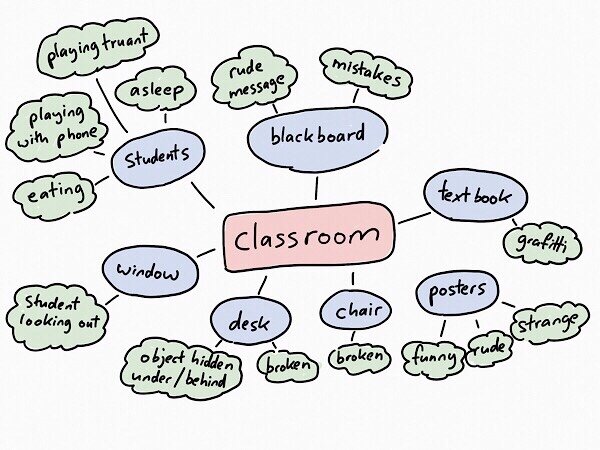 playing truant
asleep
playing
with phone
eating
Students
rude
message
mistakes
blackboard
textbook
grafitti
classroom
window
Student
looking out
desk
object hidden
under/behind
broken
chair
broken
posters
funny
rude
strange